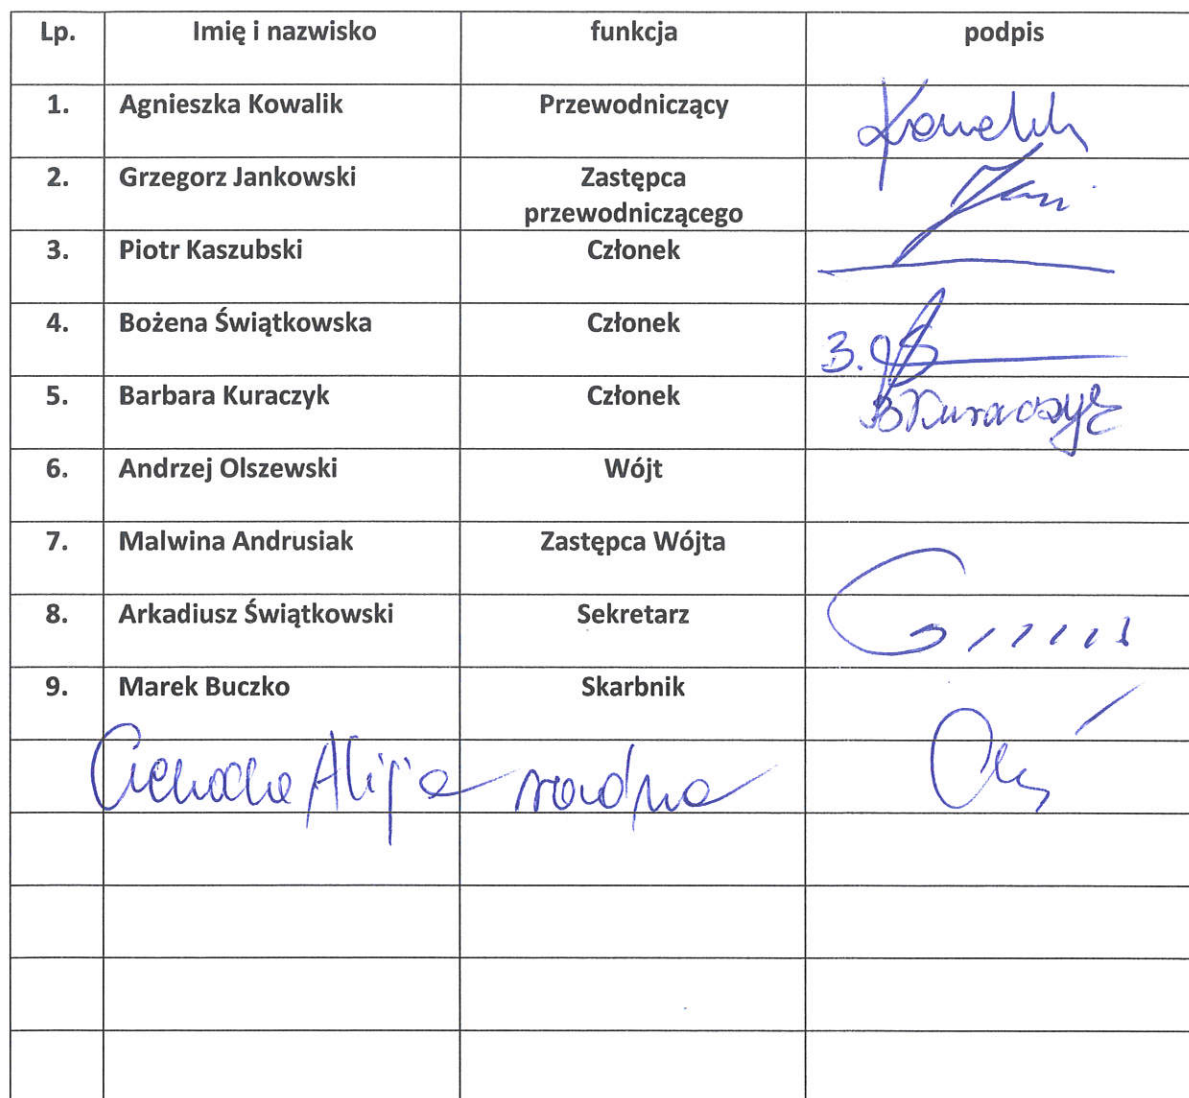 Lp. Imię i nazwisko funkcja podpis
1. Agnieszka Kowalik Przewodniczący Kowalik
2. Grzegorz Jankowski Zastępca
przewodniczącego
3. Piotr Kaszubski Członek
4. Bożena Świątkowska Członek B.
5. Barbara Kuraczyk Członek BKuraczyk
6. Andrzej Olszewski Wójt
7. Malwina Andrusiak Zastępca Wójta
8. Arkadiusz Świątkowski Sekretarz
9. Marek Buczko Skarbnik
Cichocka Alicja radna